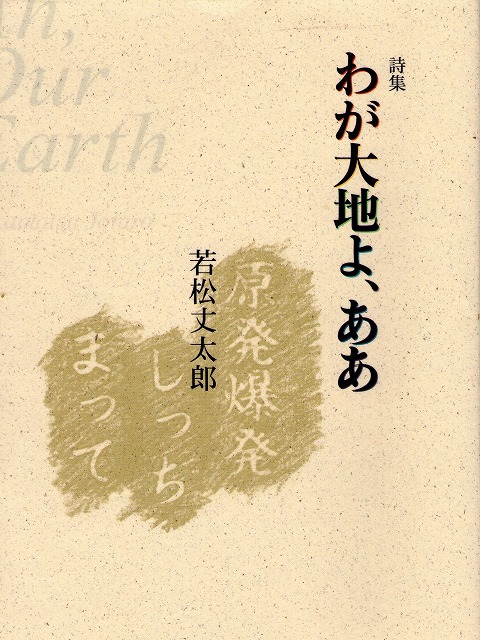 詩集
わが大地よ、ああ
若松丈太郎
原発爆発
しっち
まって
Ah,
Our
Earth